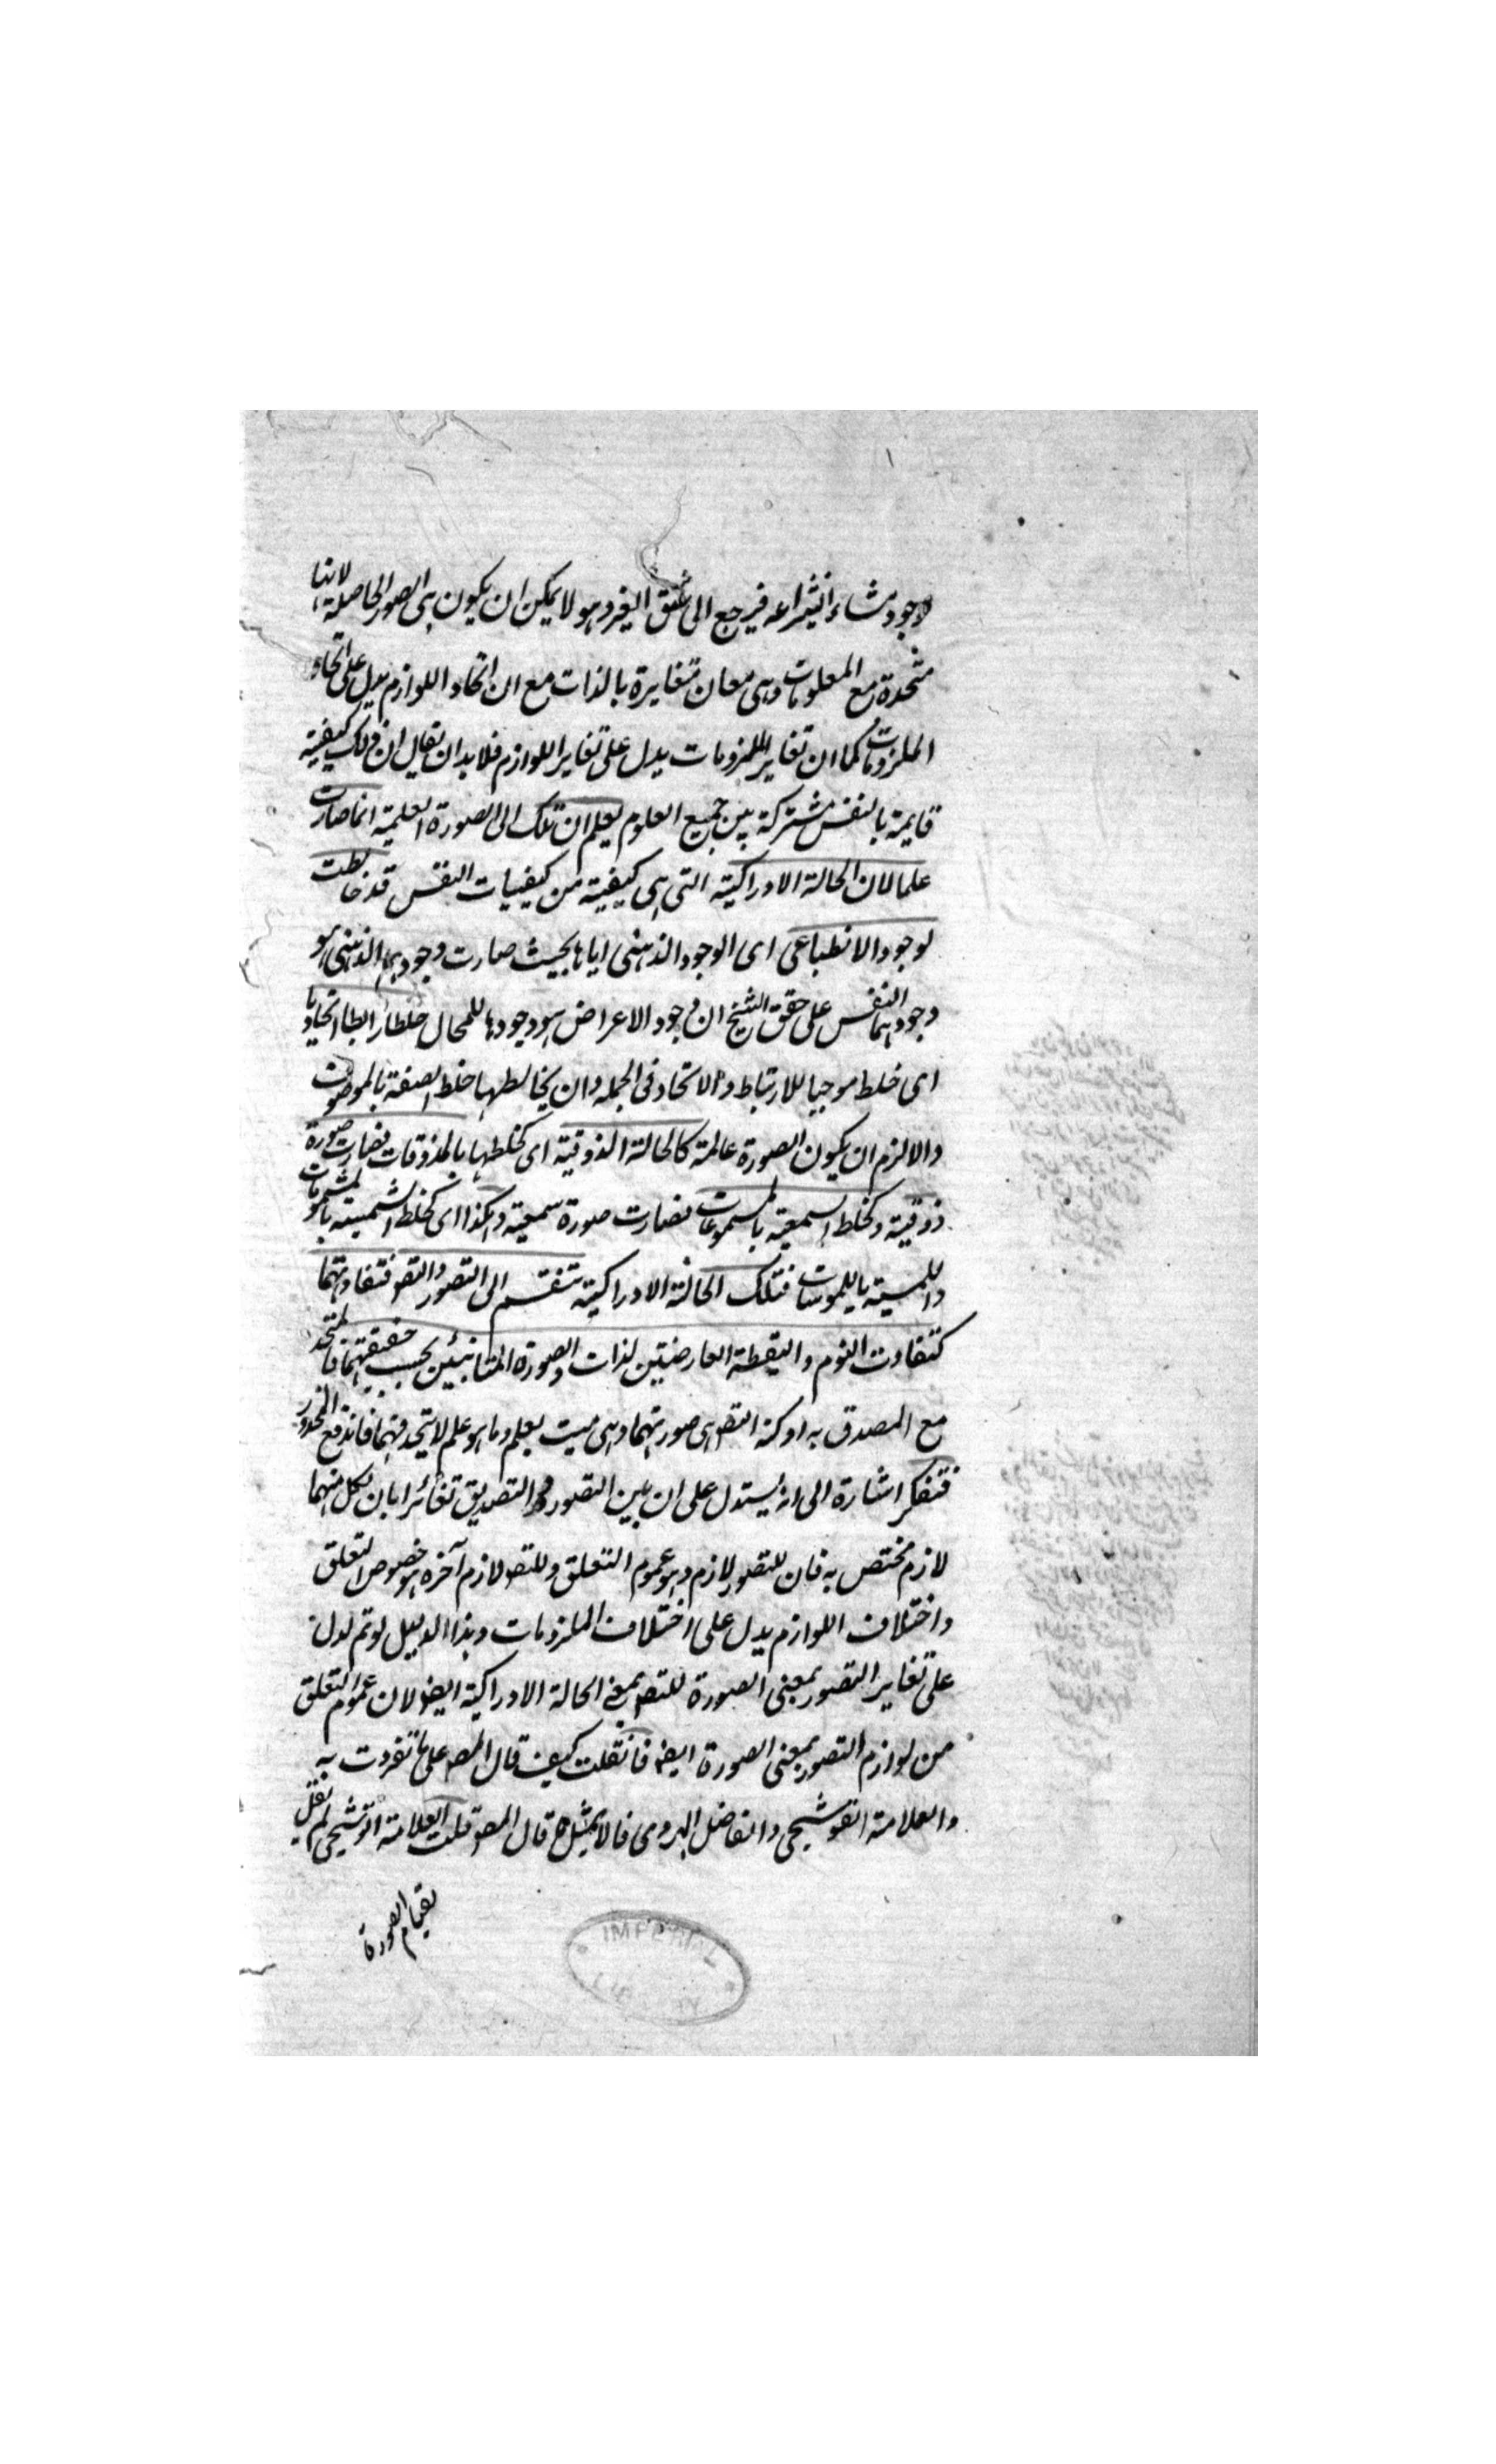 لوجود منشاء انتزاعه فيرجع الى شق الفرد وهو لا يمكن ان يكون هى الصور الحاصلة لانها
متحدة مع المعلومات وهى معان متغايرة بالذات مع ان اتحاد اللوازم يدل على اتحاد
الملزومات كما ان تغاير الملزومات يدل على تغاير اللوازم فلا بد ان يقال ان ذلك كيفية
قايمة بالنفس مشتركة بين جميع العلوم يعلم ان تلك الى الصورة العلمية انما صارت
علما لان الحالة الادراكية التى هى كيفية من كيفيات النفس قد خالطت
لوجود الانطباعى اى الوجود الذهنى اياها بحيث صارت وجودهما الذهنى هو
وجودهما النفس على حقق الشيخ ان وجود الاعراض هو وجودها للمحال خلطا رابطا اتحاديا
اى خلط موجبا للارتباط والاتحاد فى الجملة وان يخالطها خلط الصفة بالموصوف
والا لزم ان يكون الصورة عالمة كالحالة الذوقية اى كخلطها بالمذوقات فصارت صورة
ذوقية وكخلط السمعية بالمسموعات فصارت صورة سمعية وهكذا اى كخلط الشمية بالمشمومات
واللمسية بالملموسات فتلك الحالة الادراكية تنقسم الى التصور والتصو فتفاوتهما
كتفاوت النوم واليقظة العارضتين لذات والصورة المتبائنين بحسب حقيقتهما فالمتحد
مع المصدق به او كنه التصو هى صورتهما وهى ميت بعلم وما هو علم لا يتحد فيهما فاندفع المحذور
فتفكر اشارة الى انه يستدل على ان بين التصور والتصديق تغائرا بان لكل منهما
لازم مختص به فان للتصور لازم وهو عموم التعلق وللتصو لازم آخره هو خصوص التعلق
واختلاف اللوازم يدل على اختلاف الملزومات وهذا الدليل لو تم لدل
على تغاير التصور بمعنى الصورة للتصو بمعنى الحالة الادراكية ايضو لان عموم التعلق
من لوازم التصور بمعنى الصورة ايضه فانقلت كيف قال المصو على ما تفردت به
والعلامة القوشجى والفاضل الهروى قالا بمثل ما قال المصو قلت العلامة القوشجى لم يقل
بقيام الصورة
IMPERIAL